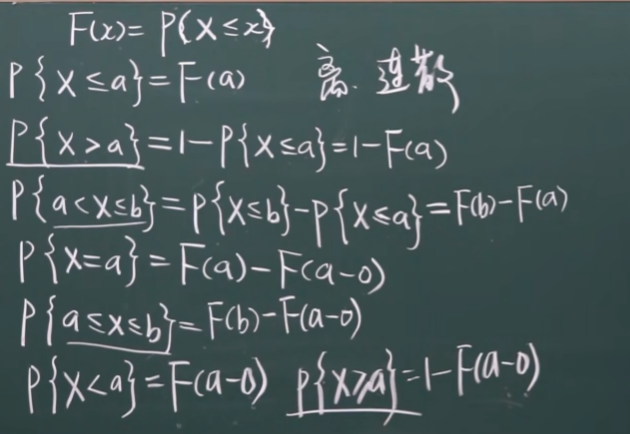 F(x)=P{X≤x}
P{X≤a}=F(a) 离.连散
P{X>a}=1-P{X≤a}=1-F(a)
P{a<X≤b}=P{X≤b}-P{X≤a}=F(b)-F(a)
P{X=a}=F(a)-F(a-0)
P{a≤X≤b}=F(b)-F(a-0)
P{X<a}=F(a-0) P{X≥a}=1-F(a-0)